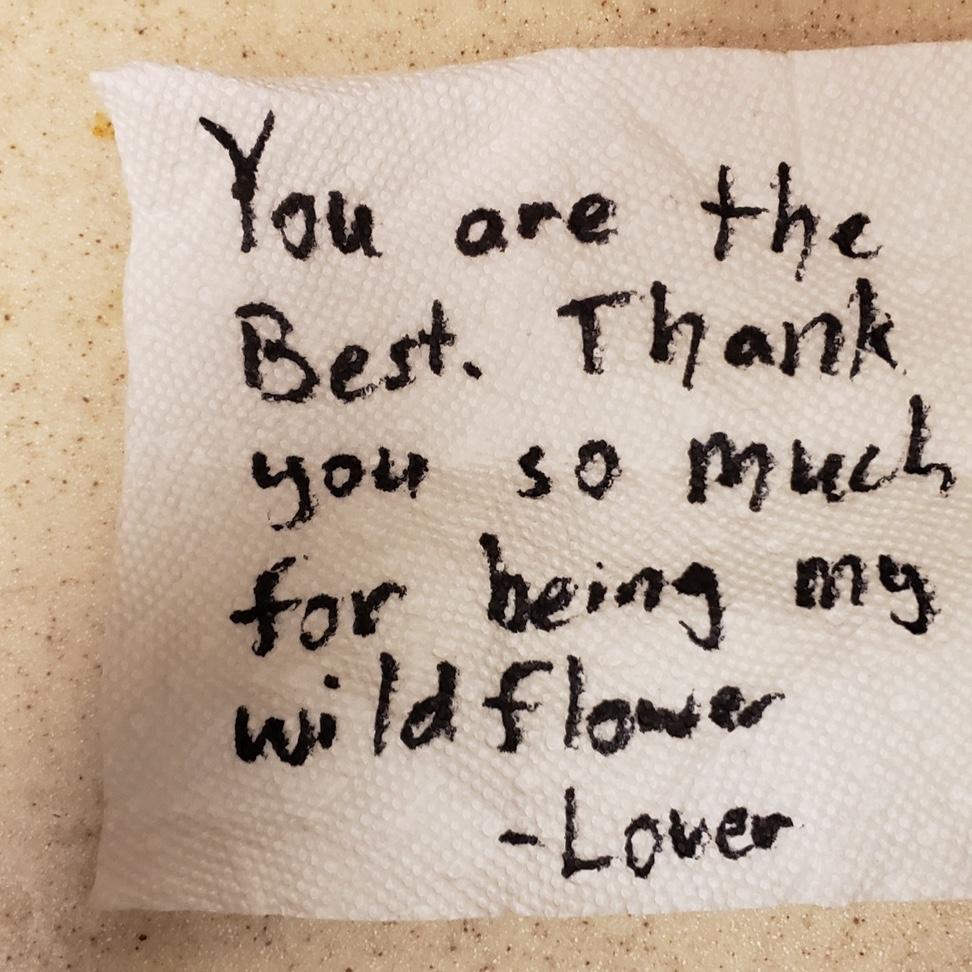 You are the
Best. Thank
you so much
for being my
wildflower
-Lover